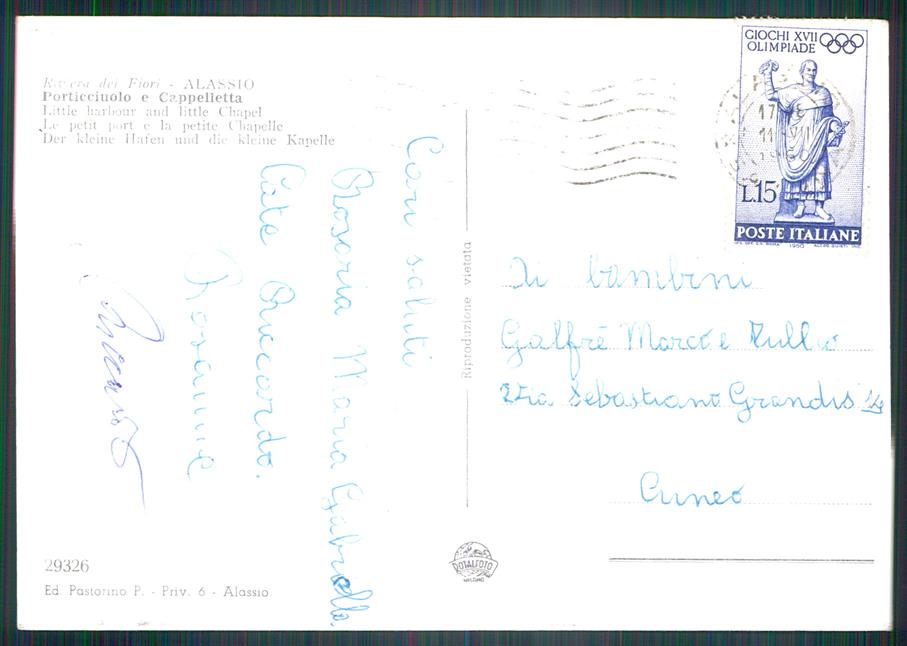 Riviera dei Fiori - ALASSIO
Porticciuolo e Cappelletta
Little harbour and little Chapel
Le petit port e la petite Chapelle
Der kleine Hafen und die kleine Kapelle
Cari saluti
Rosaria Maria Gabriella
Cate Riccardo.
Rosanne
Riproduzione vietata
GIOCHI XVII
OLIMPIADE
L.15
POSTE ITALIANE
1960
17
11 VII
Ai bambini
Galfrè Marco e Tullio
Via Sebastiano Grandis
Cuneo
ROTALFOTO
MILANO
29326
Ed. Pastorino P. - Priv. 6 - Alassio